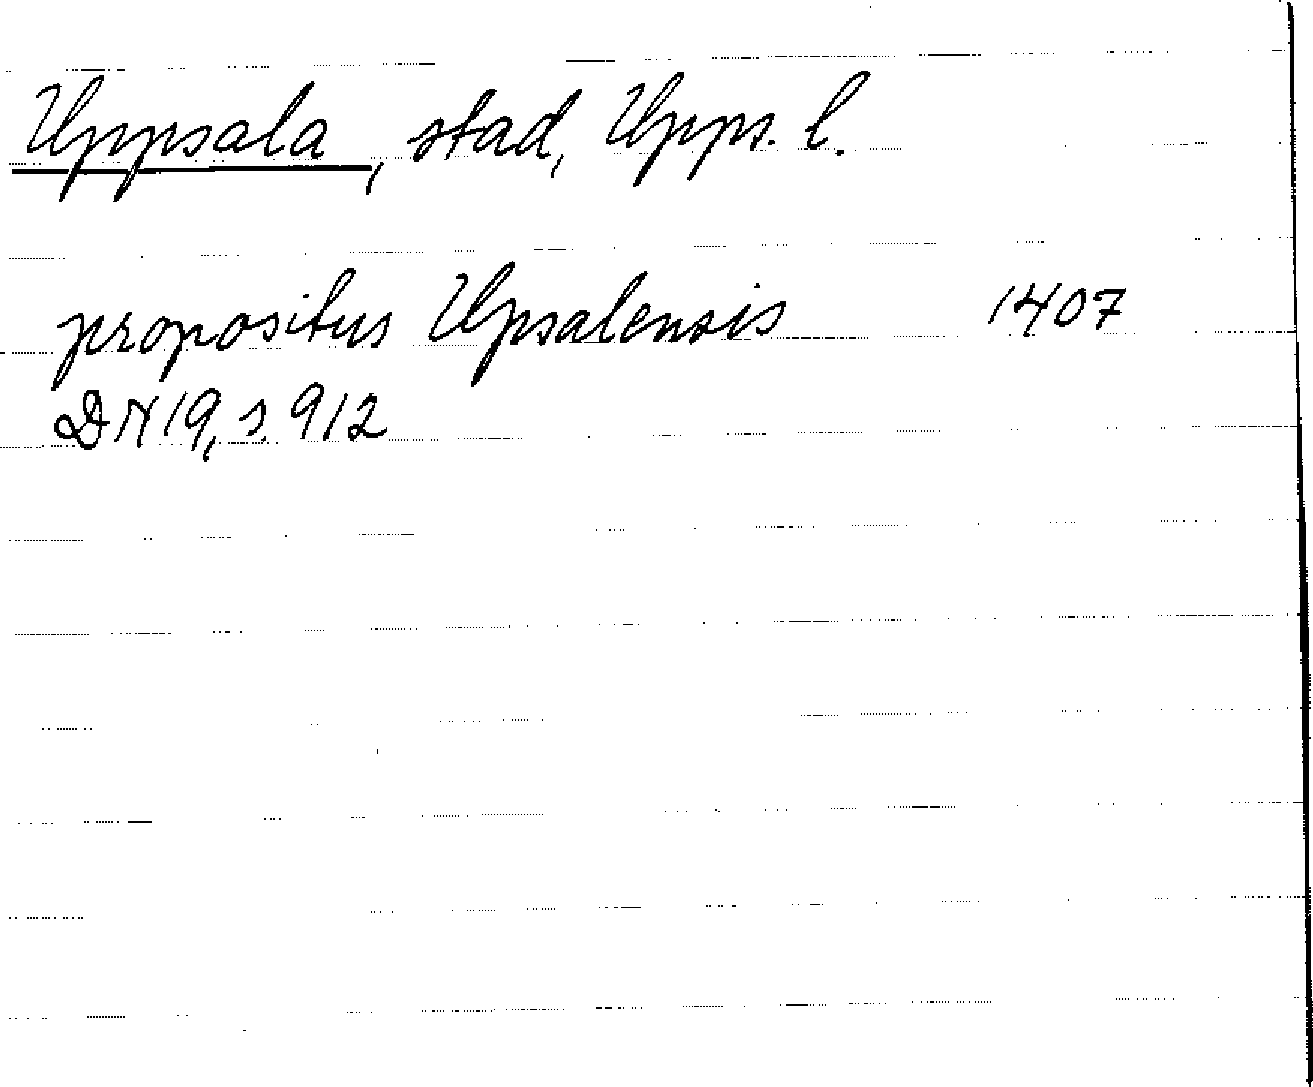 Uppsala, stad, Upps. l.
propositus Upsalensis 1407
DN 19, s. 912